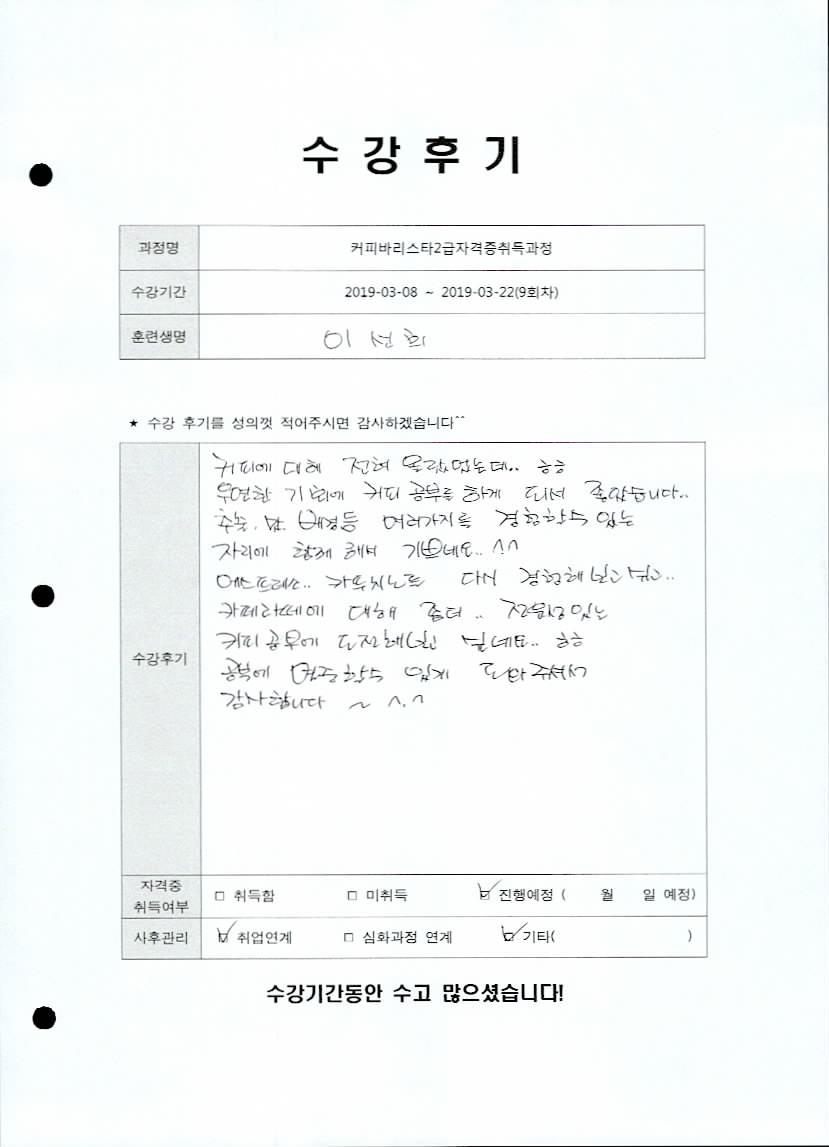 수 강 후 기
과정명 커피바리스타2급자격증취득과정
수강기간 2019-03-08 ~ 2019-03-22(9회차)
훈련생명 이 선 희
★ 수강 후기를 성의껏 적어주시면 감사하겠습니다^^
수강후기
커피에 대해 전혀 몰랐었는데.. ㅎㅎ
우연한 기회에 커피 공부를 하게 되서 좋았습니다..
등 여러가지를 경험할수 있는
자리에 함께 해서 기쁘네요.. ^^
에스프레소.. 카푸치노도 다시 경험해보고 싶고..
카페라떼에 대해 좀더 .. 전문성있는
커피 공부에 도전해보고 싶네요.. ㅎㅎ
할수 있게 도와주셔서
감사합니다 ~ ^.^
자격증 취득여부 □ 취득함 □ 미취득 ☑ 진행예정 ( 월 일 예정)
사후관리 ☑ 취업연계 □ 심화과정 연계 ☑ 기타( )
수강기간동안 수고 많으셨습니다!